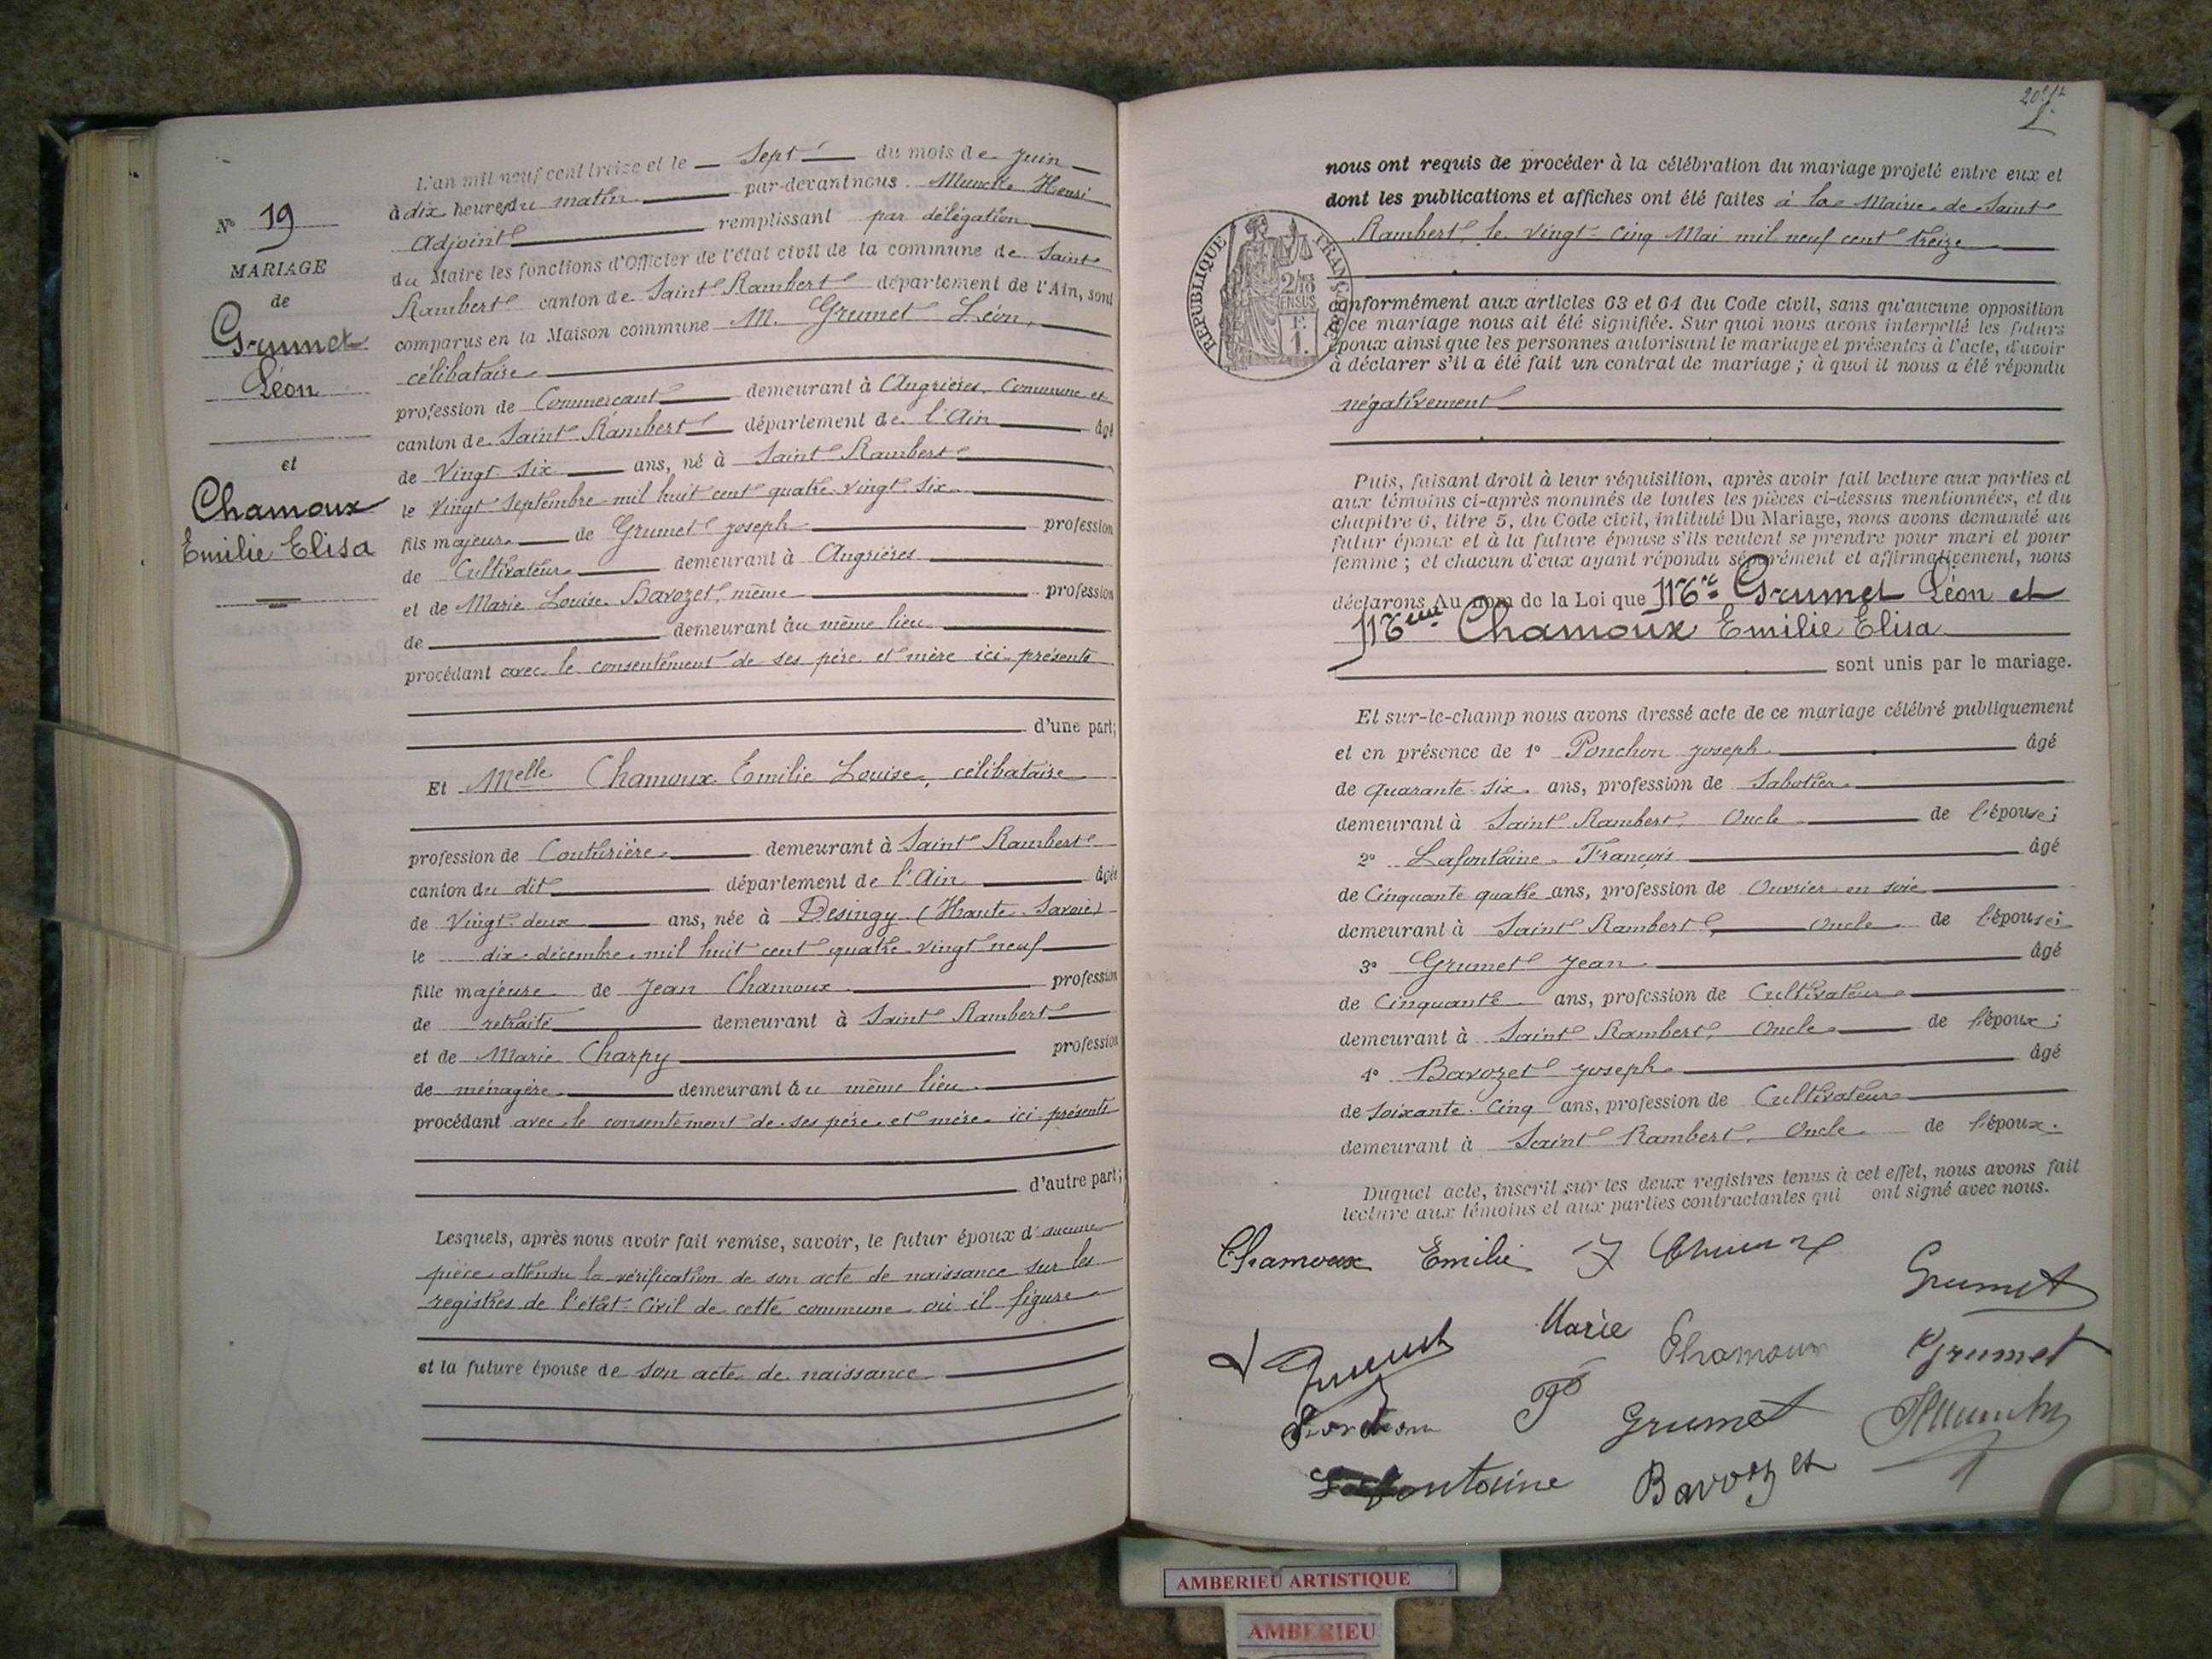 N° 19
MARIAGE
de
Grumet
Léon
et
Chamoux
Emilie Elisa
L'an mil neuf cent treize et le sept du mois de juin
à dix heures du matin par-devant nous Henri
Adjoint remplissant par délégation
du Maire les fonctions d'Officier de l'état civil de la commune de Saint
Rambert canton de Saint Rambert département de l'Ain, sont
comparus en la Maison commune M. Grumet Léon,
célibataire
profession de Commerçant demeurant à Angrières, Commune et
canton de Saint Rambert département de l'Ain âgé
de Vingt six ans, né à Saint Rambert
le vingt Septembre mil huit cent quatre vingt six
fils majeur de Grumet Joseph profession
de Cultivateur demeurant à Angrières
et de Marie Louise Bavozet, même profession
de demeurant au même lieu
procédant avec le consentement de ses père et mère ici présents
d'une part;
Et Melle Chamoux Emilie Louise, célibataire
profession de Couturière demeurant à Saint Rambert
canton du dit département de l'Ain âgée
de Vingt deux ans, née à Desingy (Haute Savoie)
le dix décembre mil huit cent quatre vingt neuf
fille majeure de Jean Chamoux profession
de retraité demeurant à Saint Rambert
et de Marie Charpy profession
de ménagère demeurant au même lieu
procédant avec le consentement de ses père et mère ici présents
d'autre part;
Lesquels, après nous avoir fait remise, savoir, le futur époux d'aucune
pièce attendu la vérification de son acte de naissance sur les
registres de l'état-civil de cette commune où il figure
et la future épouse de son acte de naissance
nous ont requis de procéder à la célébration du mariage projeté entre eux et
dont les publications et affiches ont été faites à la Mairie de Saint
Rambert, le vingt-cinq Mai mil neuf cent treize
RÉPUBLIQUE FRANÇAISE
2/10 EN SUS
F. 1.
conformément aux articles 63 et 64 du Code civil, sans qu'aucune opposition
à ce mariage nous ait été signifiée. Sur quoi nous avons interpellé les futurs
époux ainsi que les personnes autorisant le mariage et présentes à l'acte, d'avoir
à déclarer s'il a été fait un contrat de mariage ; à quoi il nous a été répondu
négativement
Puis, faisant droit à leur réquisition, après avoir fait lecture aux parties et
aux témoins ci-après nommés de toutes les pièces ci-dessus mentionnées, et du
chapitre 6, titre 5, du Code civil, intitulé Du Mariage, nous avons demandé au
futur époux et à la future épouse s'ils veulent se prendre pour mari et pour
femme ; et chacun d'eux ayant répondu séparément et affirmativement, nous
déclarons Au nom de la Loi que Mr Grumet Léon et
Melle Chamoux Emilie Elisa
sont unis par le mariage.
Et sur-le-champ nous avons dressé acte de ce mariage célébré publiquement
et en présence de 1° Ponchon Joseph âgé
de quarante six ans, profession de Sabotier
demeurant à Saint Rambert, Oncle de l'épouse;
2° Lafontaine François âgé
de Cinquante quatre ans, profession de Ouvrier en soie
demeurant à Saint Rambert, Oncle de l'épouse;
3° Grumet Jean âgé
de Cinquante ans, profession de Cultivateur
demeurant à Saint Rambert, Oncle de l'époux;
4° Bavozet Joseph âgé
de soixante cinq ans, profession de Cultivateur
demeurant à Saint Rambert, Oncle de l'époux.
Duquel acte, inscrit sur les deux registres tenus à cet effet, nous avons fait
lecture aux témoins et aux parties contractantes qui ont signé avec nous.
Chamoux Emilie
Grumet
Marie Chamoux Grumet
Grumet
Lafontaine Bavozet
AMBERIEU ARTISTIQUE
AMBERIEU